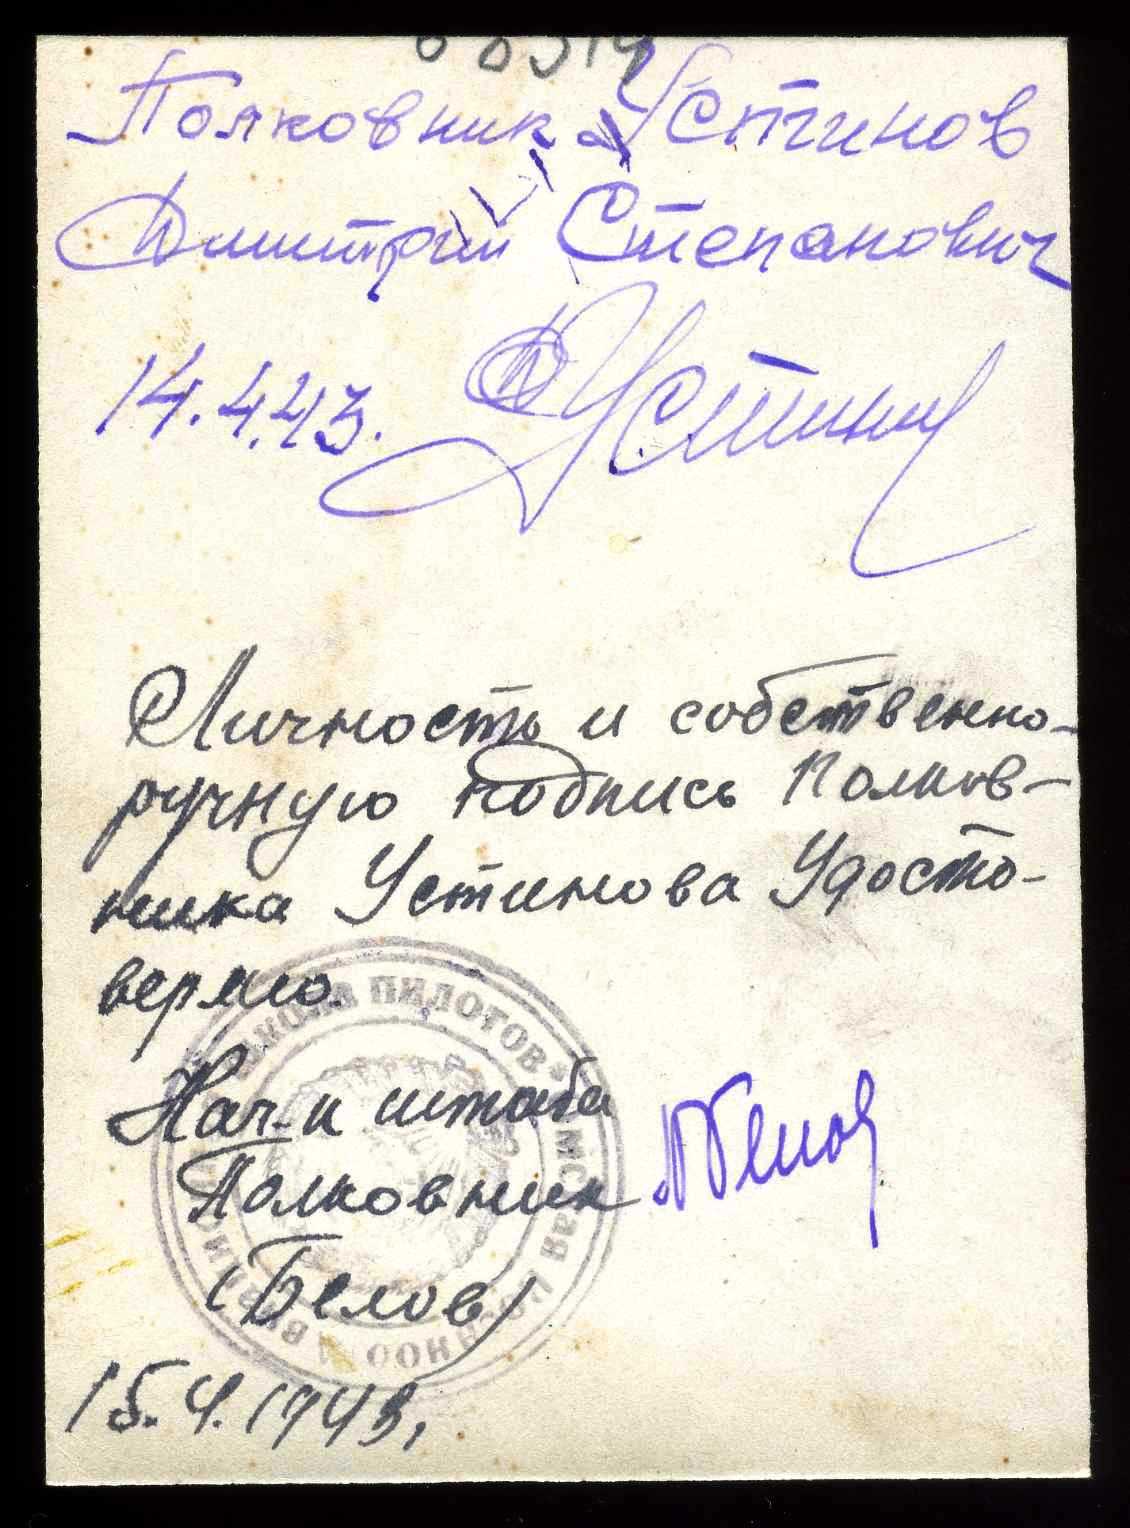 Полковник Устинов
Дмитрий Степанович
14.4.43.
Устинов
Личность и собственно-
ручную подпись Полков-
ника Устинова Удосто-
веряю.
Нач-к штаба
Полковник Белов
(Белов)
15.4.1943.
ШКОЛА ПИЛОТОВ